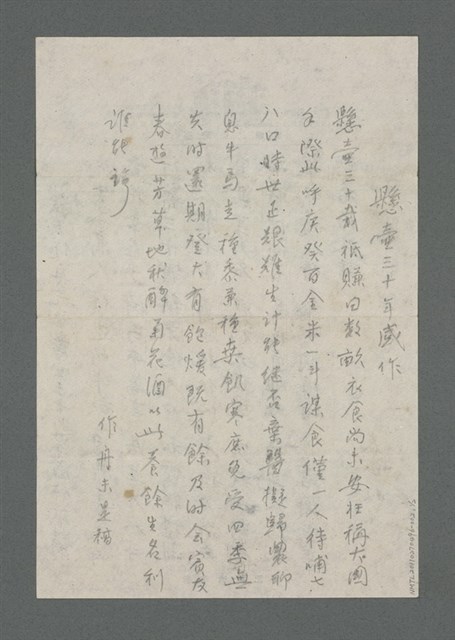 懸壺三十年感作
懸壺三十載祗賺田数畝衣食尚未安枉称大國
手際此呼庚癸百金米一斗謀食僅一人待哺七、
八口時世正艱難生計能继否棄醫擬歸農聊
息牛馬走種黍兼種桑飢寒庶免受四季無
災时還期登大有飽煖既有餘及时会賓友
春遊芳草地秋醉菊花酒以此養餘生名利
誰能
作舟未是稿